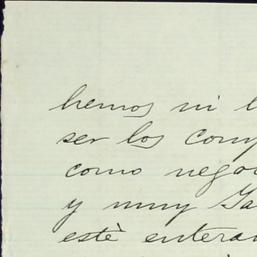 hemos ni l
ser los comp
como nego
y muy
estè entera